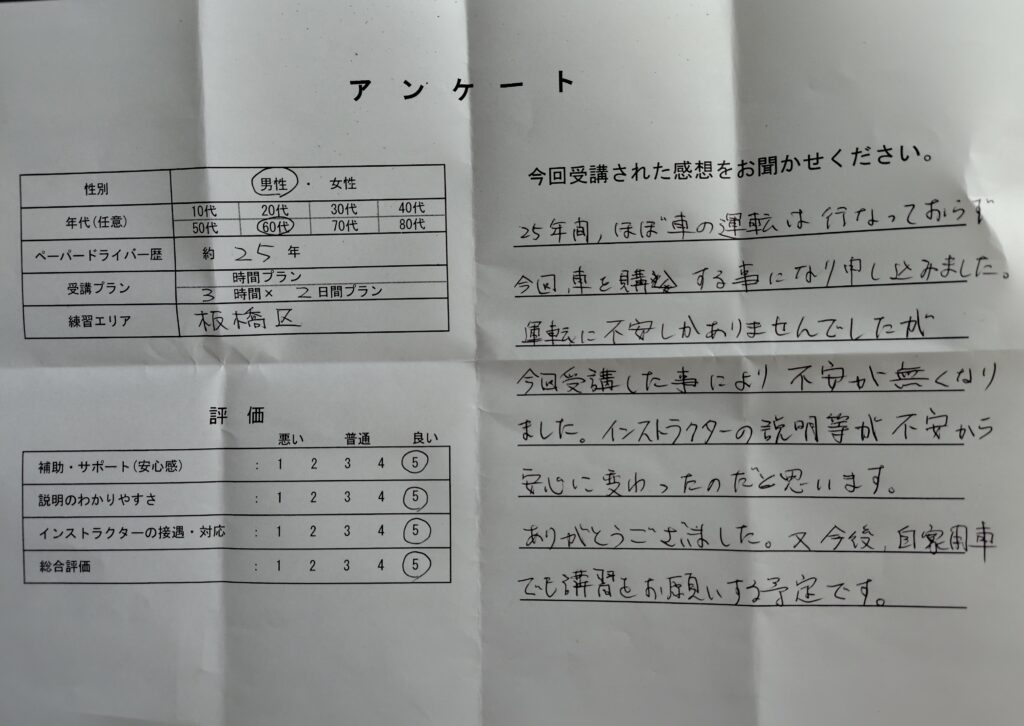 アンケート
性別 男性 ・ 女性
年代(任意) 10代 20代 30代 40代
50代 60代 70代 80代
ペーパードライバー歴 約 25 年
受講プラン 時間プラン
3 時間× 2日間プラン
練習エリア 板橋区
評価
悪い 普通 良い
補助・サポート(安心感) : 1 2 3 4 5
説明のわかりやすさ : 1 2 3 4 5
インストラクターの接遇・対応 : 1 2 3 4 5
総合評価 : 1 2 3 4 5
今回受講された感想をお聞かせください。
25年間,ほぼ車の運転は行なっておらず
今回,車を購する事になり申し込みました。
運転に不安しかありませんでしたが
今回受講した事により不安が無くなり
ました。インストラクターの説明等が不安から
安心に変わったのだと思います。
ありがとうございました。又今後,自家用車
でも講習をお願いする予定です。